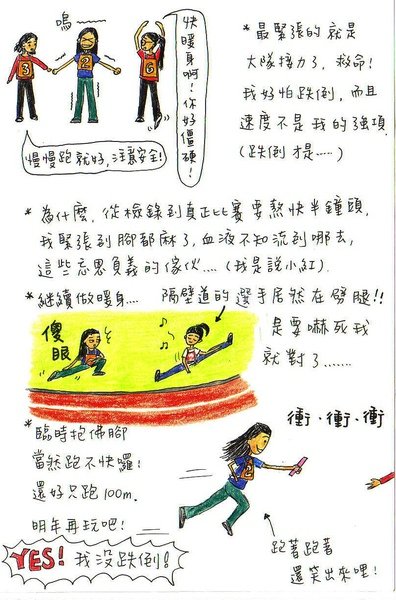 嗚——
快暖身啊！你好僵硬！
3
2
6
慢慢跑就好，注意安全！
*最緊張的就是
大隊接力了，救命！
我好怕跌倒，而且
速度不是我的強項
(跌倒才是……)
*為什麼，從檢錄到真正比賽要熬快半鐘頭，
我緊張到腳都麻了，血液不知流到哪去，
這些忘恩負義的傢伙…. (我是說小紅).
*繼續做暖身….
隔壁道的選手居然在劈腿!!
是要嚇死我
就對了…….
傻眼
*臨時抱佛腳
當然跑不快囉!
還好只跑100m.
明年再玩吧!
YES! 我沒跌倒!
衝、衝、衝
2
跑著跑著
還笑出來哩!